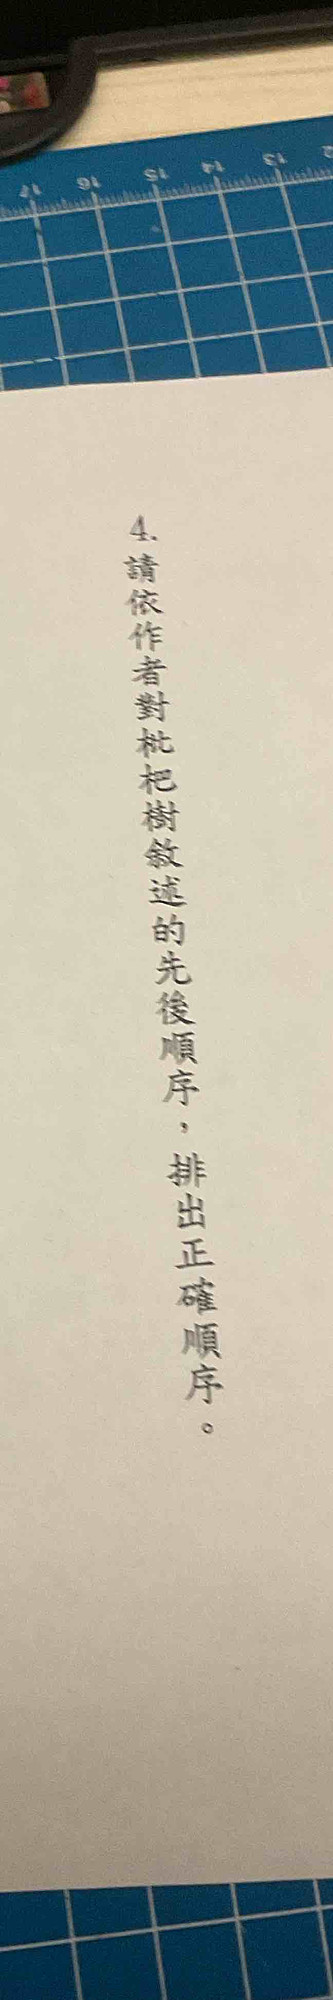 17 16 15 14 13
4.請依作者對枇杷樹敘述的先後順序，排出正確順序。